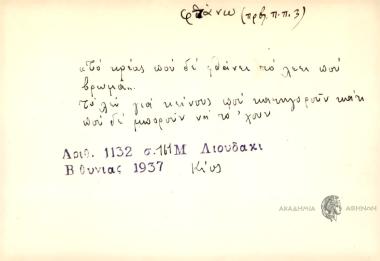 φτάνω (πρβλ. π.π. 3)
«Τό κρέας πού δέ φθάνει τό λέει πού
βρωμά».
Τό λέν γιά κείνους πού κατηγοροῦν κάτι
πού δέ μποροῦν νά τό 'χουν
Αριθ. 1132 σ. 161 Μ Λιουδακι
Β θυνιας 1937 Κίος
ΑΚΑΔΗΜΙΑ ΑΘΗΝΩΝ